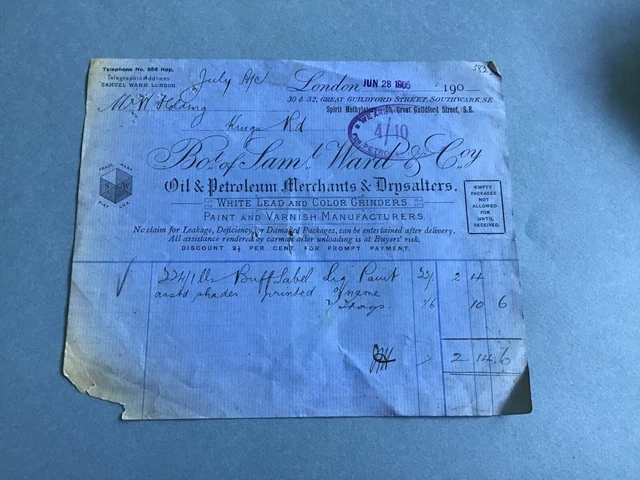 Telephone No. 866 Hop.
Telegraphic Address
SAMUEL WARD LONDON
July A/c London JUN 28 1905 190
582
30 & 32, GREAT GUILDFORD STREET, SOUTHWARK, S.E.
Mr W Holding
Spirit Methylators, Great Guildford Street, S.E.
Kings Rd
WE ARE
4/10
FOR PETROL
Bot. of Saml. Ward & Coy
TRADE MARK
Oil & Petroleum Merchants & Drysalters.
WHITE LEAD AND COLOR GRINDERS
PAINT AND VARNISH MANUFACTURERS
EMPTY
PACKAGES
NOT
ALLOWED
FOR
UNTIL
RECEIVED.
No claim for Leakage, Deficiency, or Damaged Packages, can be entertained after delivery.
All assistance rendered by carman after unloading is at Buyers' risk.
DISCOUNT 2½ PER CENT FOR PROMPT PAYMENT.
Buff Label Liq Paint 22/- 2 4
asstd shades printed name
1/6 10 6
2 14 6